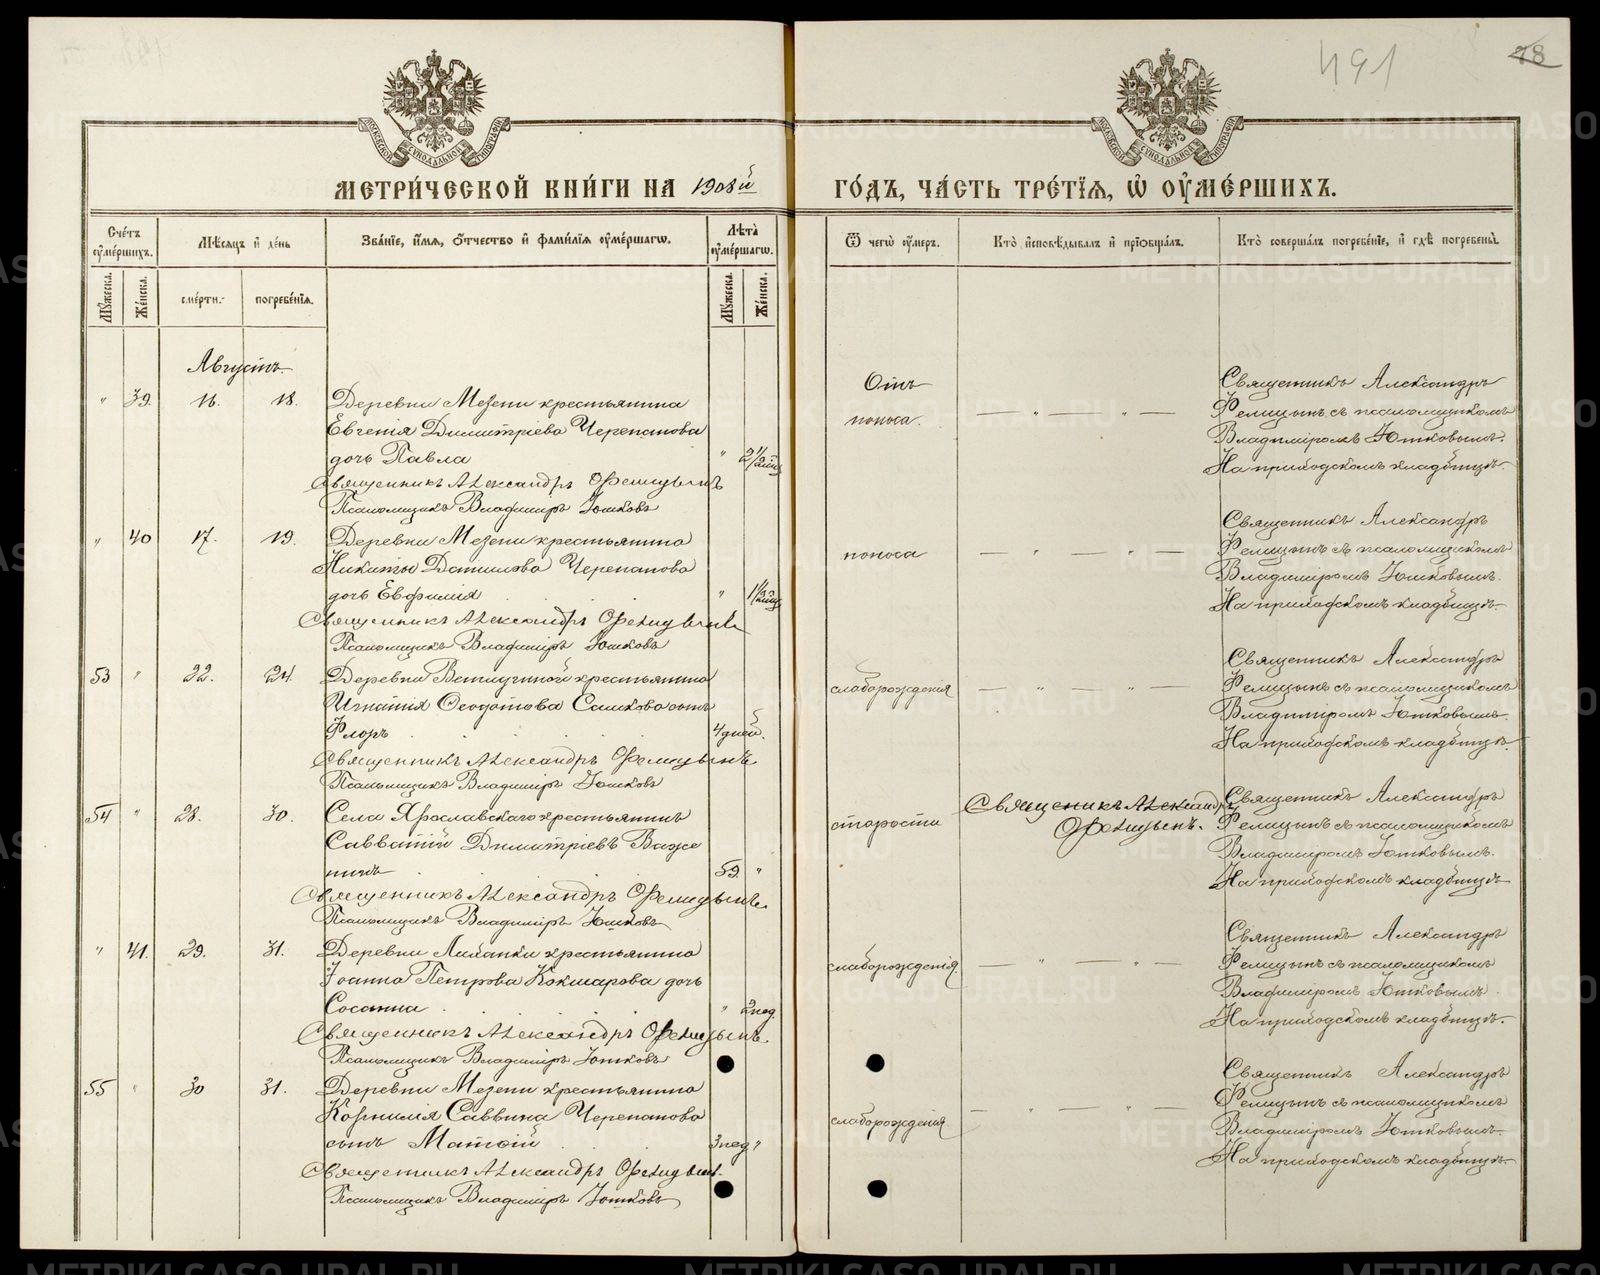 491
78
МОСКОВСКОЙ СѴНОДАЛЬНОЙ ТИПОГРАФІИ
МОСКОВСКОЙ СѴНОДАЛЬНОЙ ТИПОГРАФІИ
МЕТРИ́ЧЕСКОЙ КНИ́ГИ НА 1908й ГО́ДЪ, ЧА́СТЬ ТРЕ́ТІѦ, Ѡ҆ ОУ҆МЕ́РШИХЪ.
Сче́тъ оу҆ме́ршихъ.
Мꙋ́жеска.
Же́нска.
Мѣ́сѧцъ и҆ де́нь
сме́рти.
погребе́нїѧ.
Зва́нїе, и҆́мѧ, ѻ҆́тчество и҆ фами́лїѧ оу҆ме́ршагѡ.
Лѣ́та оу҆ме́ршагѡ.
Мꙋ́жеска.
Же́нска.
Ѿ чегѡ̀ оу҆́меръ.
Кто̀ и҆сповѣ́дывалъ и҆ прїѻбща́лъ.
Кто̀ соверша́лъ погребе́нїе, и҆ гдѣ̀ погребены̀.
Августъ.
" 39. 16. 18. Деревни Мезени крестьянина
Евгенія Димитріева Черепанова
дочь Павла " 2 1/2 мѣс
Священникъ Александръ Ѳелицынъ
Псаломщикъ Владиміръ Юшковъ
Отъ
поноса.
— " — " —
Священникъ Александръ
Фелицынъ съ псаломщикомъ
Владиміромъ Юшковымъ.
На приходскомъ кладбищѣ.
" 40 17. 19. Деревни Мезени крестьянина
Никиты Данилова Черепанова
дочь Евфимія " 1 1/2 мѣс
Священникъ Александръ Ѳелицынъ
Псаломщикъ Владиміръ Юшковъ
поноса
— " — " —
Священникъ Александръ
Фелицынъ съ псаломщикомъ
Владиміромъ Юшковымъ.
На приходскомъ кладбищѣ.
53 " 22. 24. Деревни крестьянина
Игнатія Ѳеодотова сынъ
Флоръ 4 дней.
Священникъ Александръ Ѳелицынъ
Псаломщикъ Владиміръ Юшковъ
слаборожденія
— " — " —
Священникъ Александръ
Фелицынъ съ псаломщикомъ
Владиміромъ Юшковымъ.
На приходскомъ кладбищѣ.
54 " 28. 30. Села Ярославскаго крестьянинъ
Савватій Димитріевъ Важе
нинъ 59. "
Священникъ Александръ Ѳелицынъ.
Псаломщикъ Владиміръ Юшковъ
старости
Священникъ Александръ
Ѳелицынъ.
Священникъ Александръ
Фелицынъ съ псаломщикомъ
Владиміромъ Юшковымъ.
На приходскомъ кладбищѣ
" 41. 29. 31. Деревни крестьянина
Іоанна Петрова Кокшарова дочь
Сосанна " 2 нед.
Священникъ Александръ Ѳелицынъ.
Псаломщикъ Владиміръ Юшковъ
слаборожденія.
— " — " —
Священникъ Александръ
Фелицынъ съ псаломщикомъ
Владиміромъ Юшковымъ.
На приходскомъ кладбищѣ.
55 " 30 31. Деревни Мезени крестьянина
Корнилія Саввина Черепанова
сынъ Матѳій 3 нед "
Священникъ Александръ Ѳелицынъ.
Псаломщикъ Владиміръ Юшковъ
слаборожденія
— " — " —
Священникъ Александръ
Фелицынъ съ псаломщикомъ
Владиміромъ Юшковымъ.
На приходскомъ кладбищѣ.
METRIKI.GASO-URAL.RU